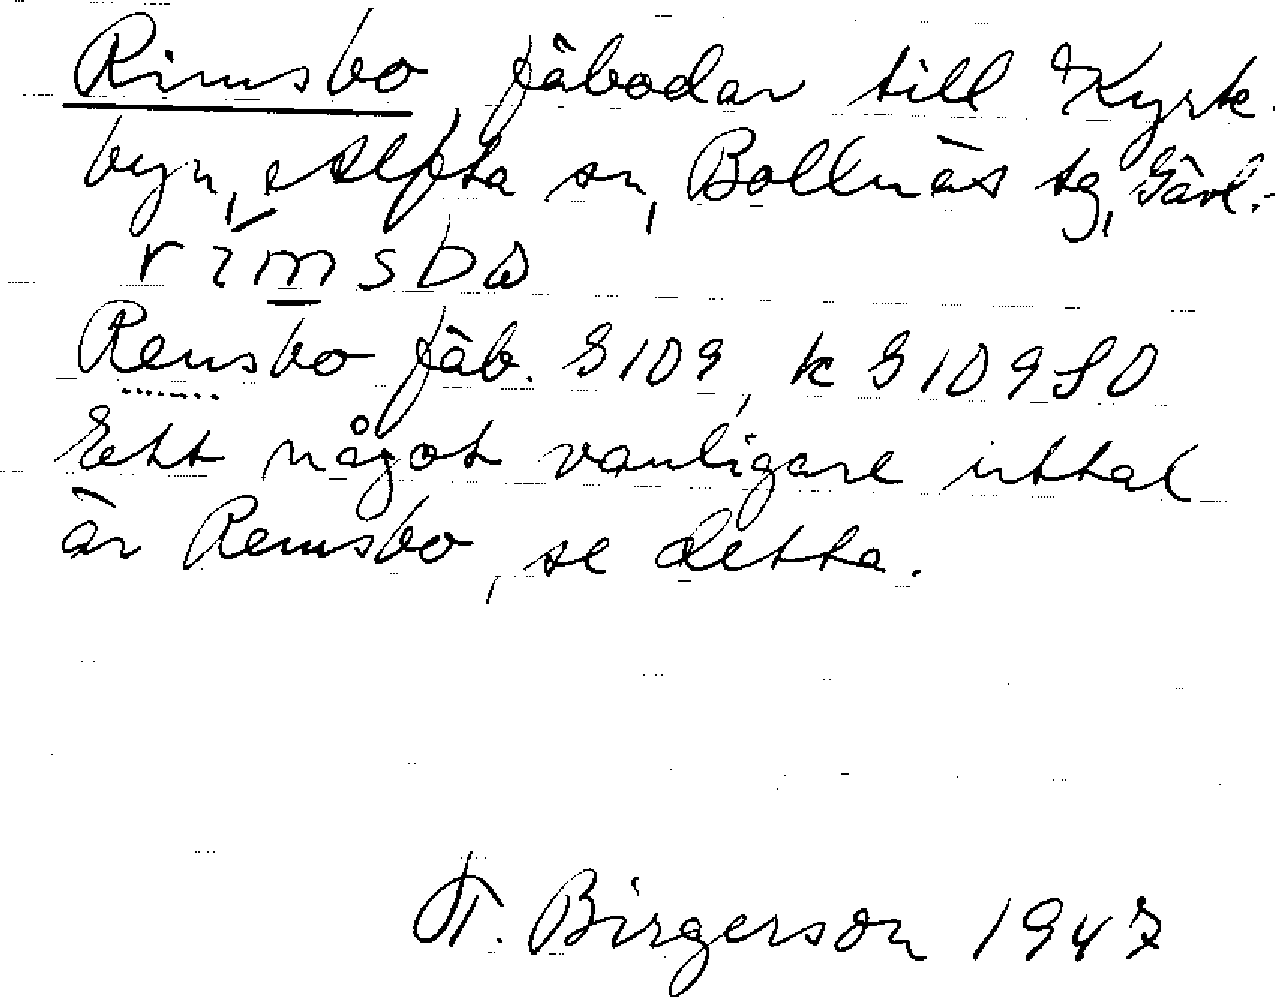 Rimsbo, fäbodar till Kyrk-
byn, Alfta sn, Bollnäs tg, Gävl.
rimsbo
Remsbo fäb. G109, k G109SO
Ett något vanligare uttal
är Remsbo, se detta.
T. Birgerson 1947